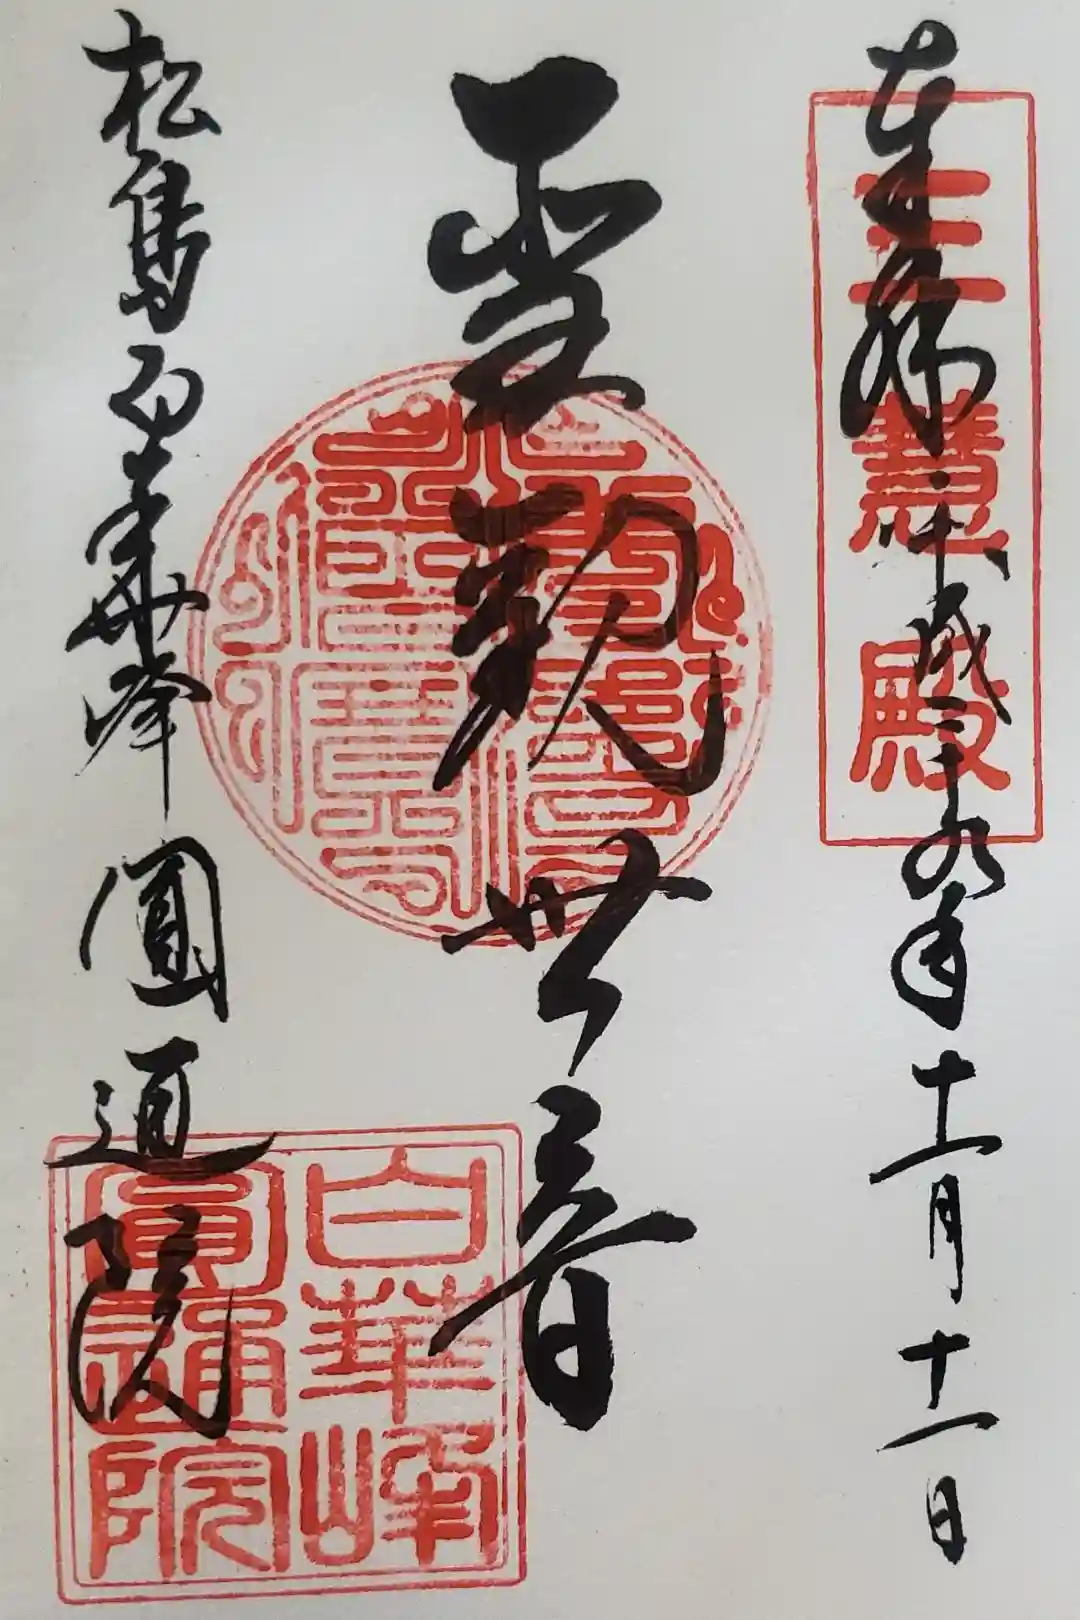 奉拝 平成二十九年十一月十一日
三慧殿
聖観世音
松島白華峯圓通院
白華峰
圓通院